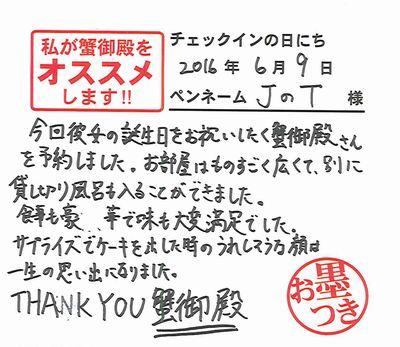 私が蟹御殿を
オススメ
します!!
チェックインの日にち
2016年6月9日
ペンネーム JのT 様
今回彼女の誕生日をお祝いしたく蟹御殿さん
を予約しました。お部屋はものすごく広くて、別に
貸し切り風呂も入ることができました。
食事も豪華で味も大変満足でした。
サプライズでケーキを出した時のうれしそうな顔は
一生の思い出になりました。
THANK YOU 蟹御殿
お墨つき